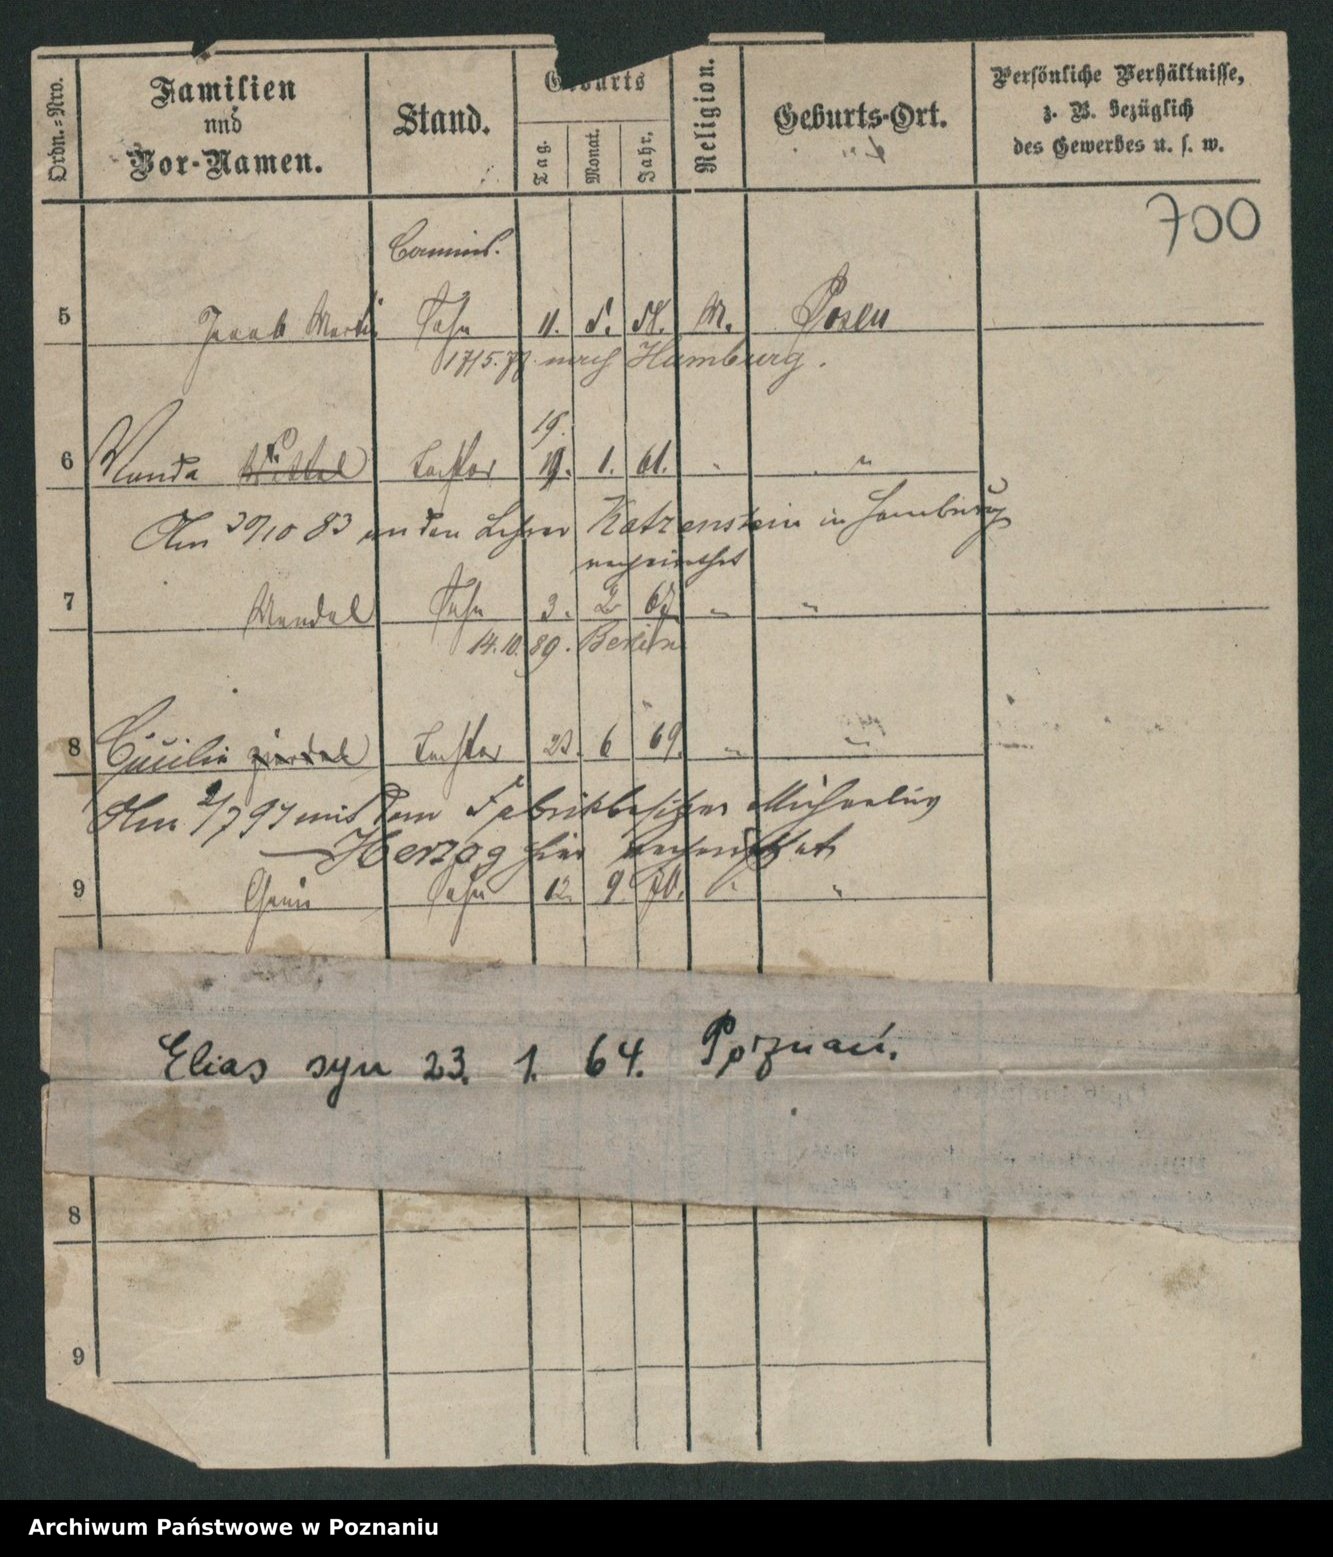 Ordn.-Nro.
Familien
und
Vor-Namen.
Stand.
Geburts
Tag. Monat. Jahr.
Religion.
Geburts-Ort.
Persönliche Verhältnisse,
z. B. bezüglich
des Gewerbes u. s. w.
700
Commis.
5 Jacob Sohn 11. 5. 58. M. Posen
17/5.77. nach Hamburg.
19.
6 Wanda Tochter 1. 61. " "
Am 30/10 83 an den Lehrer Katzenstein in Hamburg
verheirathet
7 Mendel Sohn 3. 2 67 " "
14.10.89. Berlin
8 Cäcilie Tochter 23. 6 69. " "
Am 2/7 97 mit dem Fabrikbesitzer
Herzog hier verheirathet
9 Sohn 12. 9. 70. " "
Elias syn 23. 1. 64. Poznań.
8
9
Archiwum Państwowe w Poznaniu